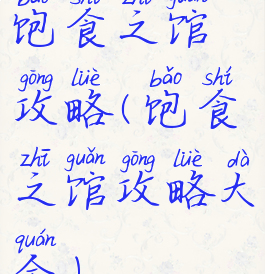 bǎo shí zhī guǎn
饱食之馆
gōng lüè bǎo shí
攻略(饱食
zhī guǎn gōng lüè dà
之馆攻略大
quán
全)